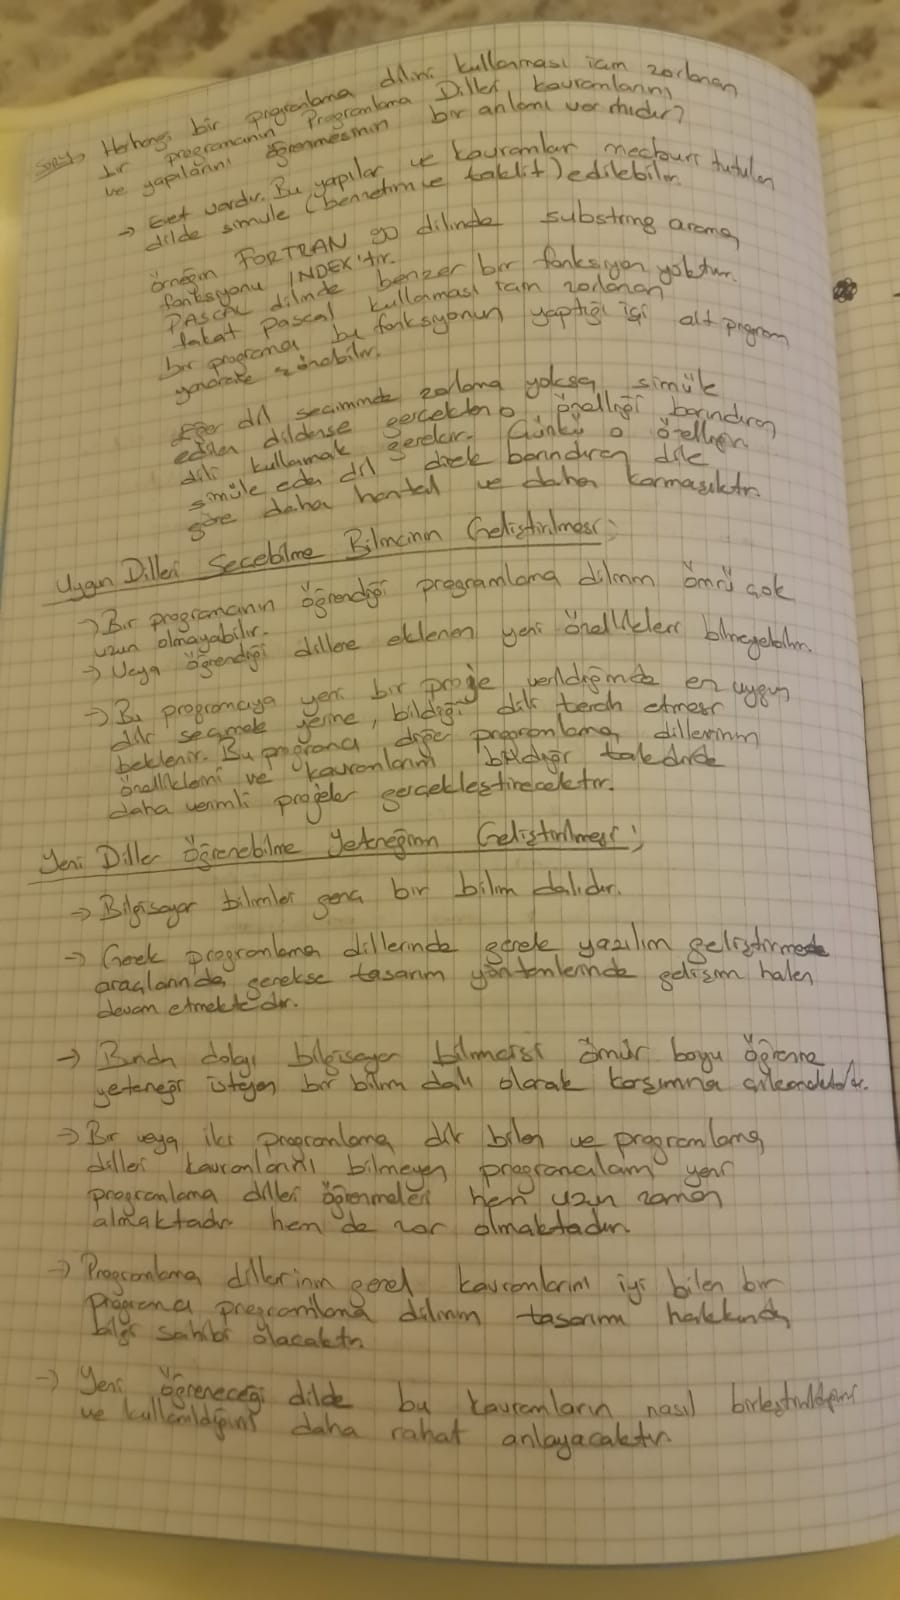 Soru→ Herhangi bir programlama dilini kullanması için zorlanan
bir programcının Programlama Dilleri kavramlarını
ve yapılarını öğrenmesinin bir anlamı var mıdır?
→ Evet vardır. Bu yapılar ve kavramlar mecburi tutulan
dilde simüle (benzetim ve taklit) edilebilir.
Örneğin FORTRAN 90 dilinde substring arama
fonksiyonu INDEX'tir.
PASCAL dilinde benzer bir fonksiyon yoktur.
fakat Pascal kullanması için zorlanan
bir programcı bu fonksiyonun yaptığı işi alt program
yazarak
Eğer dil seçiminde zorlama yoksa, simüle
edilen dildense gerçekten o özelliği barındıran
dili kullanmak gerekir. Çünkü o özelliğin
simüle eden dil direk barındıran dile
göre daha hantal ve daha karmaşıktır.
Uygun Dilleri Seçebilme Bilincinin Geliştirilmesi;
→ Bir programcının öğrendiği programlama dilinin ömrü çok
uzun olmayabilir.
→ Veya öğrendiği dillere eklenen yeni özellikleri bilmeyebilir.
→ Bu programcıya yeni bir proje verildiğinde en uygun
dili seçmek yerine, bildiği dili tercih etmesi
beklenir. Bu programcı diğer programlama dillerinin
özelliklerini ve kavramlarını bildiği takdirde
daha verimli projeler gerçekleştirecektir.
Yeni Diller Öğrenebilme Yeteneğinin Geliştirilmesi;
→ Bilgisayar bilimleri genç bir bilim dalıdır.
→ Gerek programlama dillerinde gerek yazılım geliştirmede
araçlarında, gerekse tasarım yöntemlerinde gelişim halen
devam etmektedir.
→ Bundan dolayı bilgisayar bilimcisi ömür boyu öğrenme
yeteneği isteyen bir bilim dalı olarak karşımıza çıkmaktadır.
→ Bir veya iki programlama dili bilen ve programlama
dilleri kavramlarını bilmeyen programcıların yeni
programlama dilleri öğrenmeleri hem uzun zaman
almaktadır hem de zor olmaktadır.
→ Programlama dillerinin genel kavramlarını iyi bilen bir
programcı programlama dilinin tasarımı hakkında
bilgi sahibi olacaktır
→ Yeni öğreneceği dilde bu kavramların nasıl birleştirildiğini
ve kullanıldığını daha rahat anlayacaktır.